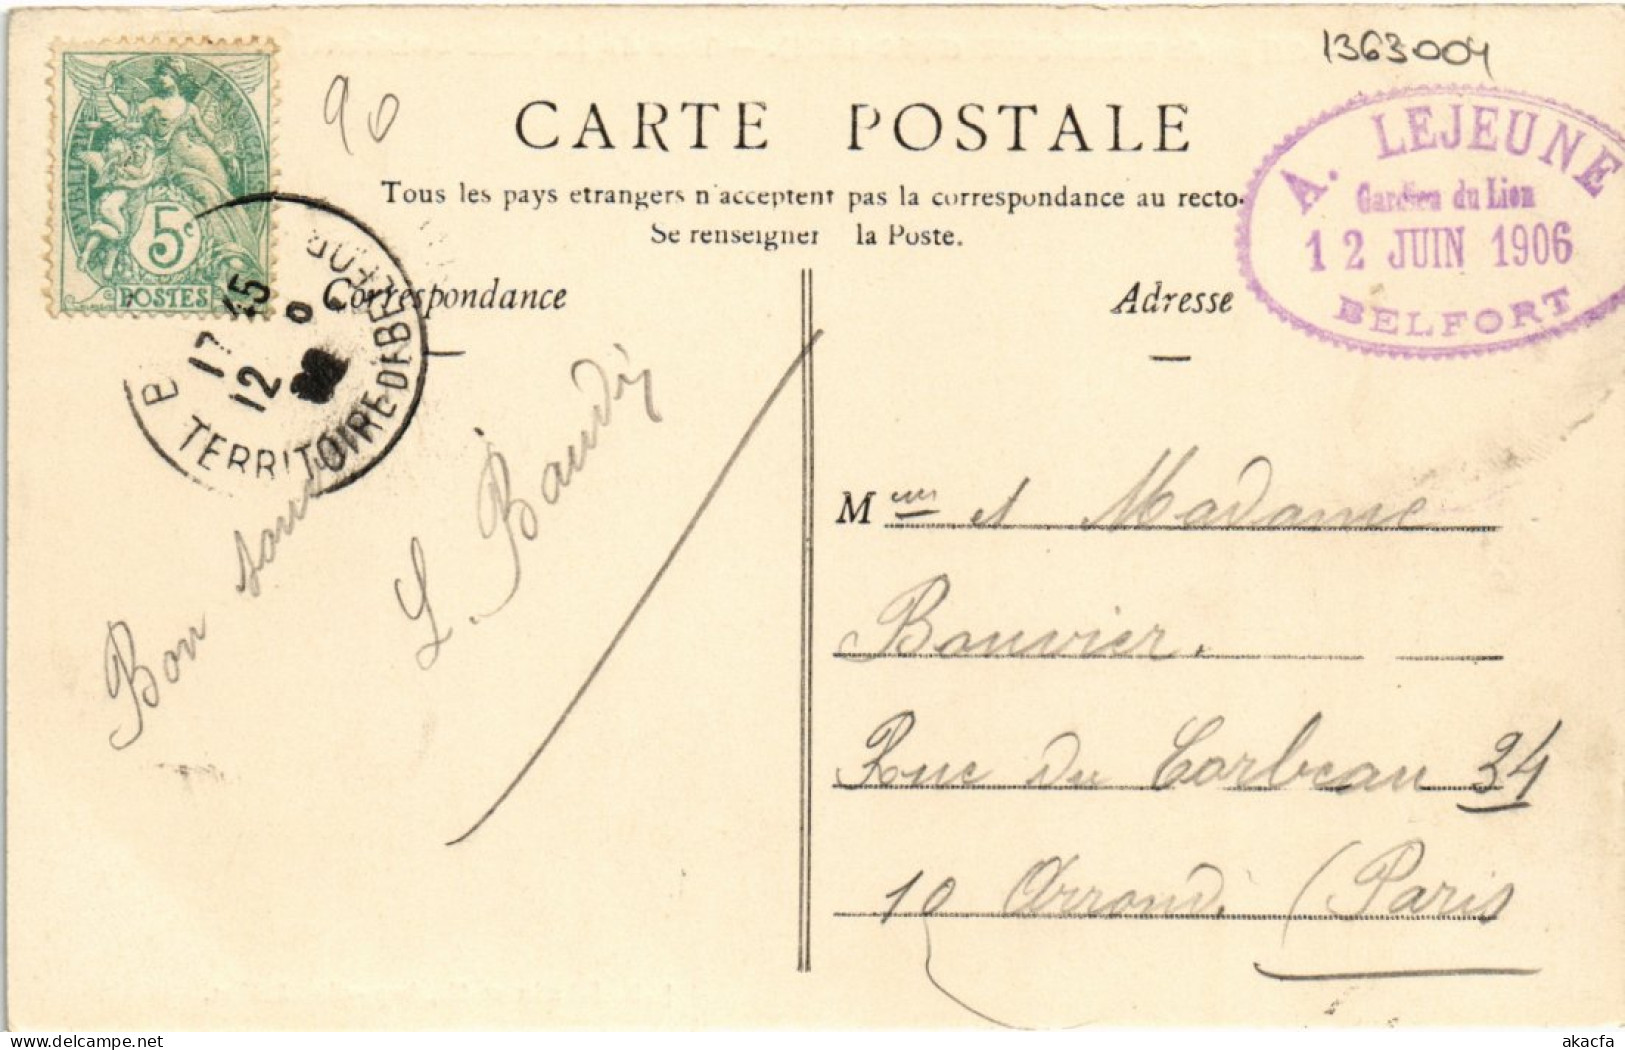 1363004
90
RÉPUBLIQUE FRANÇAISE
5c
POSTES
CARTE POSTALE
Tous les pays etrangers n'acceptent pas la correspondance au recto.
Se renseigner à la Poste.
A. LEJEUNE
Gardien du Lion
12 JUIN 1906
BELFORT
BELFORT
17 45
12
TERRITOIRE DE BELFORT
Correspondance
Adresse
Bon souvenir
L. Baudij
M et Madame
Bouvier.
Rue du Corbeau 34
10 Arrondi (Paris
akacfa
delcampe.net